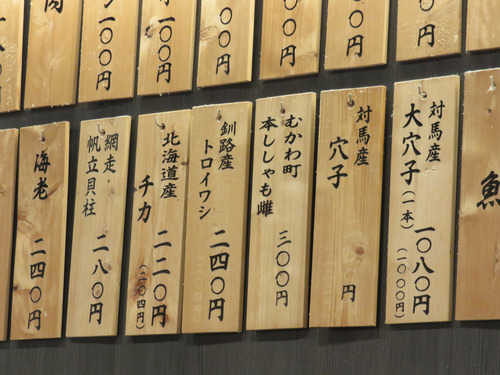 〇円
〇〇円
〇〇円
〇〇円
一〇〇円
一〇〇円
〇円
魚
対馬産
大穴子(一本)
一〇八〇円
(一〇〇〇円)
対馬産
穴子
円
むかわ町
本ししゃも雌
三〇〇円
釧路産
トロイワシ
二四〇円
北海道産
チカ
二二〇円
(二〇四円)
網走・
帆立貝柱
二八〇円
海老
二四〇円